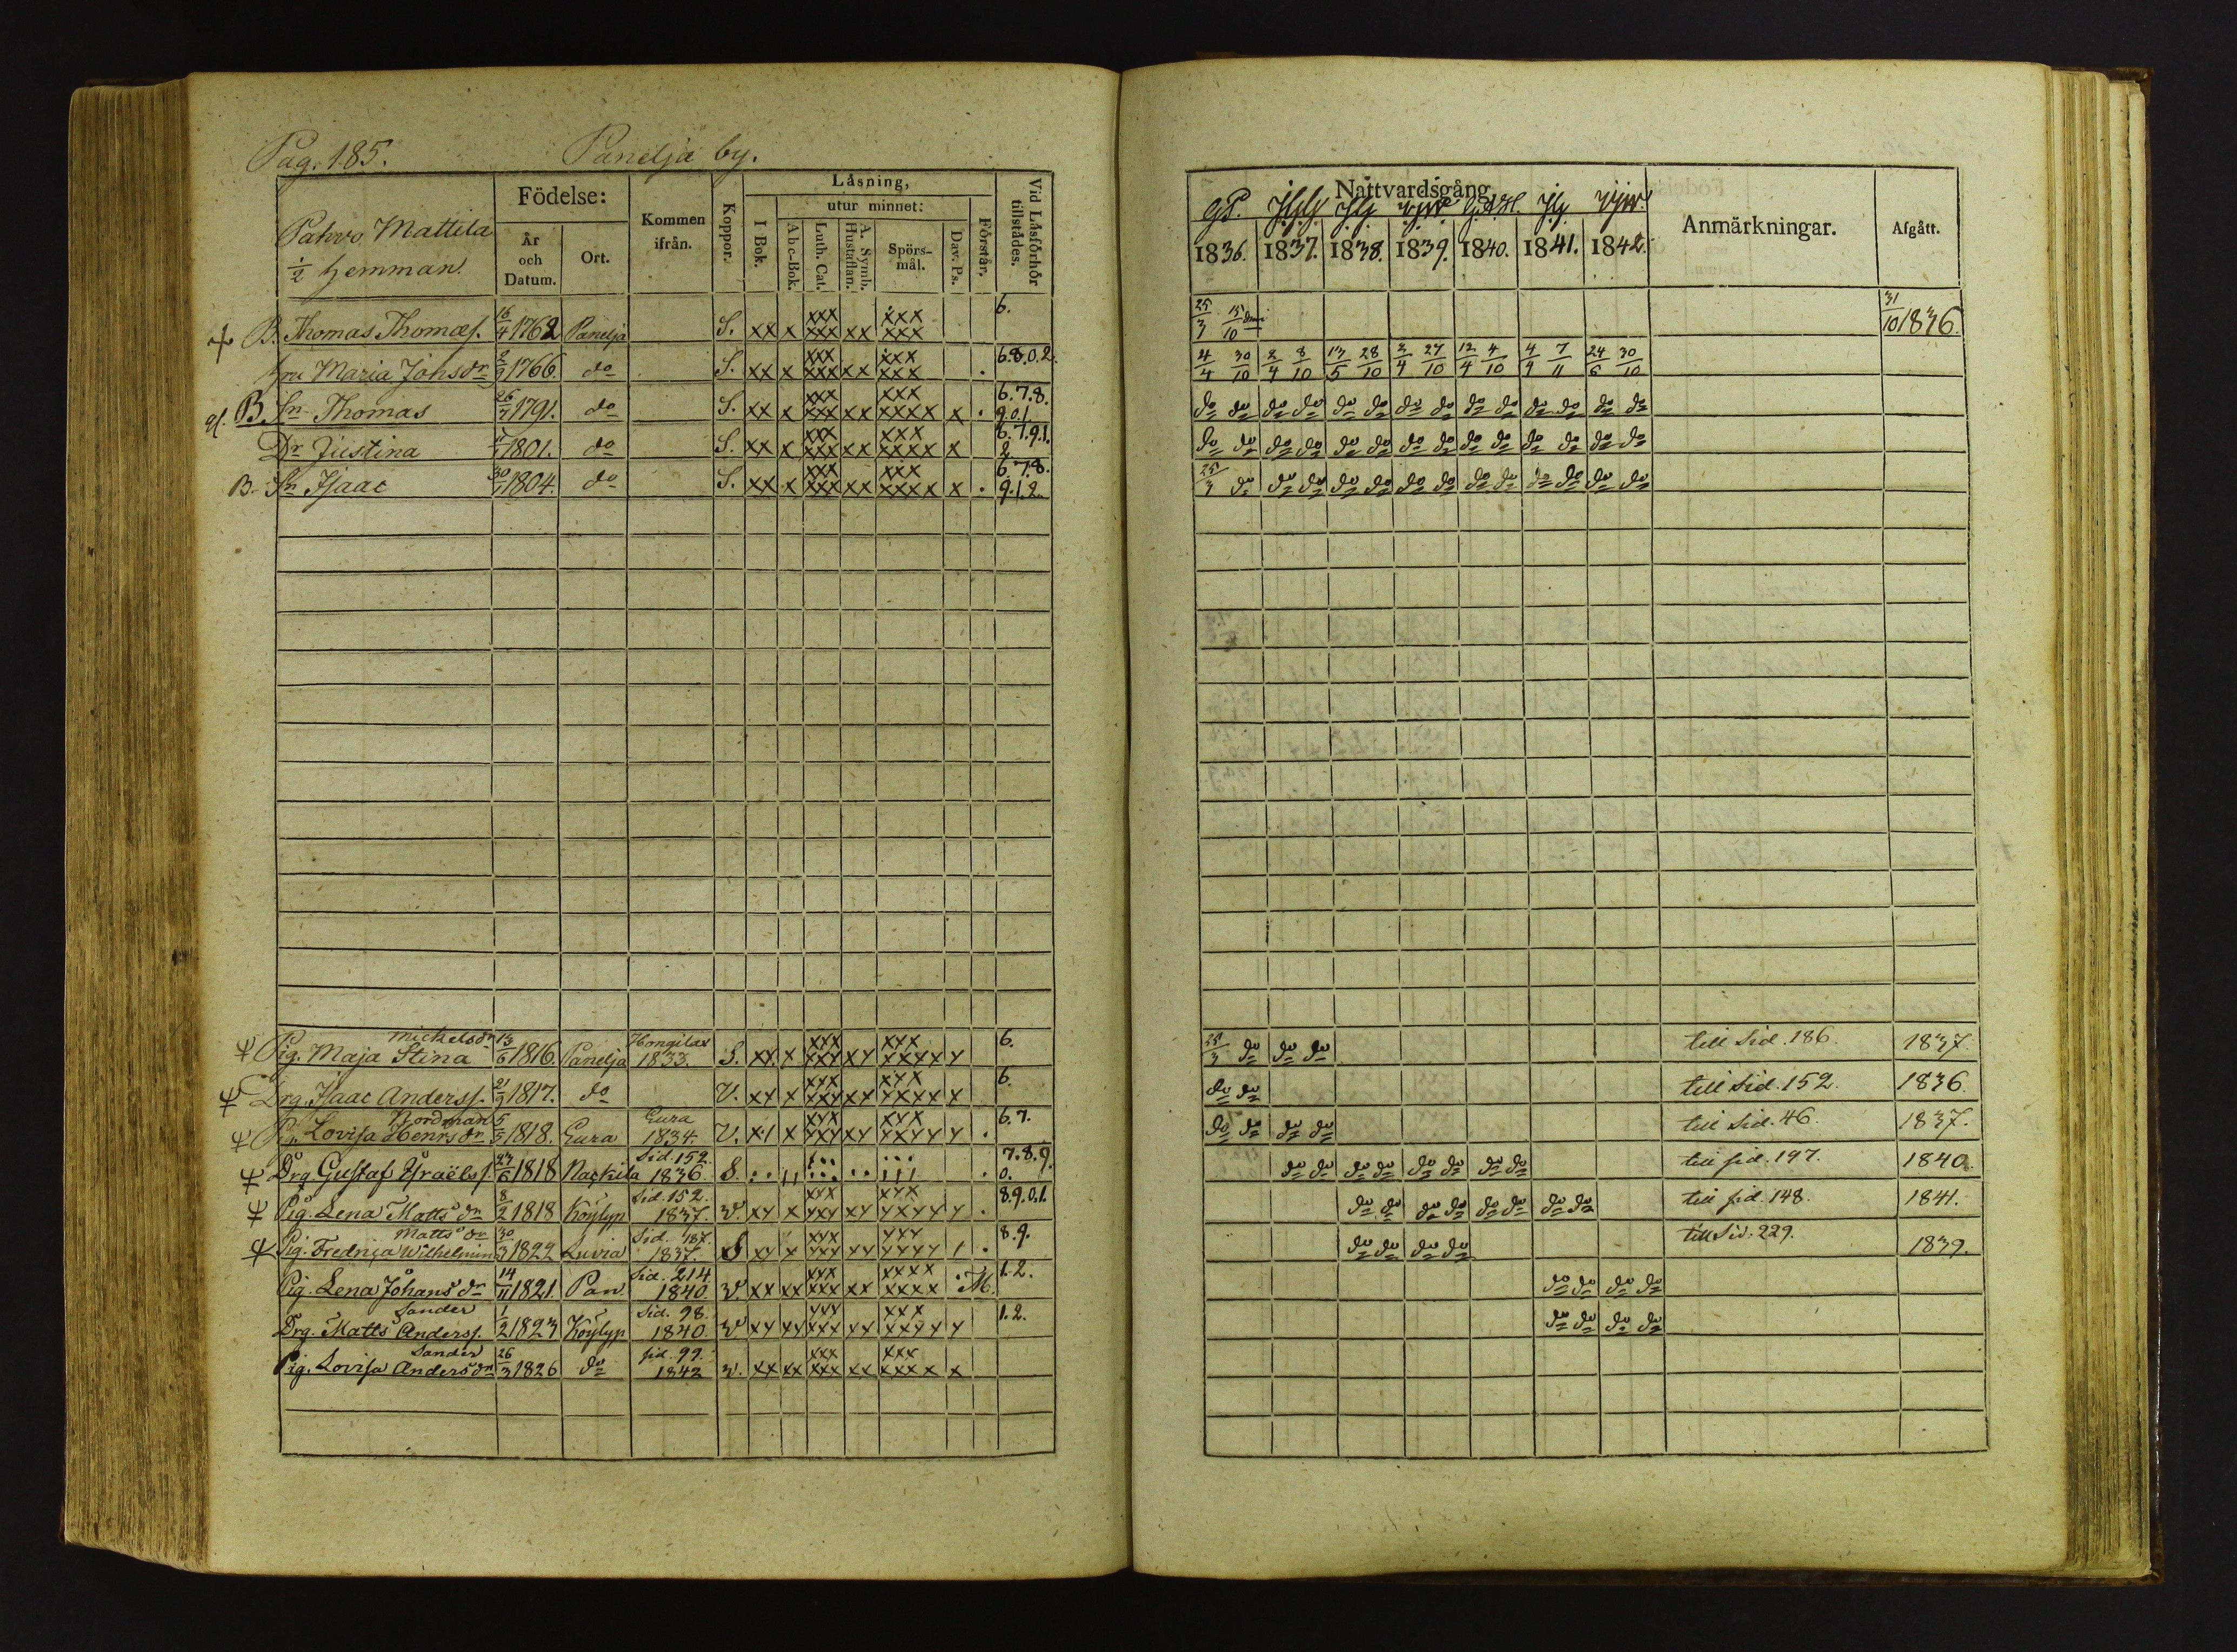 Pag. 185. Panelja by.
Pahvo Mattila
1/2 hemman.
Födelse:
År och Datum.
Ort.
Kommen ifrån.
Koppor.
Läsning,
I Bok.
utur minnet:
Abc-Bok.
Luth. Cat.
A. Symb. Hustaflan.
Spörs-mål.
Dav. Ps.
Förstår.
Vid Läsförhör tillstädes.
Nattvardsgång
1836. 1837. 1838. 1839. 1840. 1841. 1842.
Anmärkningar.
Afgått.
B. Thomas Thomæs. 16/4 1762 Panelja S. xx x xxx xxx xx xxx xxx 6. 25/3 15/10 31/10 1836.
Maria Johsdr 1766. do S. xx x xxx xxx xx xxx xxx . 6.8.0.2. 4/4 30/10 2/4 8/10 13/5 28/10 2/4 27/10 12/4 4/10 4/4 7/11 24/6 30/10
B. Sn Thomas 26/7 1791. do S. xx x xxx xxx xx xxx xxxx x . 6.7.8. 9.0.1. do do do do do do do do do do do do do do
Dr Justina 1801. do S. xx x xxx xxx xx xxx xxxx x 6.7.9.1. 2 do do do do do do do do do do do do do do
B. Sn Isaac 1804. do S. xx x xxx xxx xx xxx xxxx x . 6.7.8. 9.1.2. 25/3 do do do do do do do do do do do do do
Pig. Maja Stina Michelsdr 13/6 1816. Panelja Hongilax 1833. S. xx x xxx xxx xx xxx xxxx x 6. 25/3 do do do till Sid. 186. 1837.
Drg. Isaac Anderss. 21/9 1817. do V. xx x xxx xxx xx xxx xxxx x 6. do do till Sid. 152. 1836
Nordman
Pig. Lovisa Henrsdr 1818. Eura Eura 1834. V. xx x xxx xxx xx xxx xxxx x . 6.7. do do do do till Sid. 46. 1837.
Drg. Gustaf Israëlss. 23/6 1818 Nackila Sid. 152. 1836 S. . 7.8.9. 0. do do do do do do do do till sid. 197. 1840.
Pig. Lena Matts dr 8/2 1818 Köylyp Sid. 152. 1837. V. xx x xxx xxx xx xxx xxxx x . 8.9.0.1. do do do do do do do do till sid. 148. 1841.
Matts dr
Pig. Fredrica Wilhelmina 30/3 1822 Luvia Sid. 187. 1837. S xx x xxx xxx xx xxx xxxx . 8.9. do do do do till Sid. 229. 1839.
Pig. Lena Johans dr 14/11 1821. Pan Sid. 214. 1840. V. xx xx xxx xxx xx xxxx xxxx M. 1.2. do do do do
Sander
Drg. Matts Anderss. 1/2 1823 Köylyp Sid. 98. 1840 V xx xx xxx xxx xx xxx xxxx x 1.2. do do do do
Sander
Pig. Lovisa Anders dr 26/3 1826 do sid. 99. 1842 V. xx xx xxx xxx xx xxx xxxx x